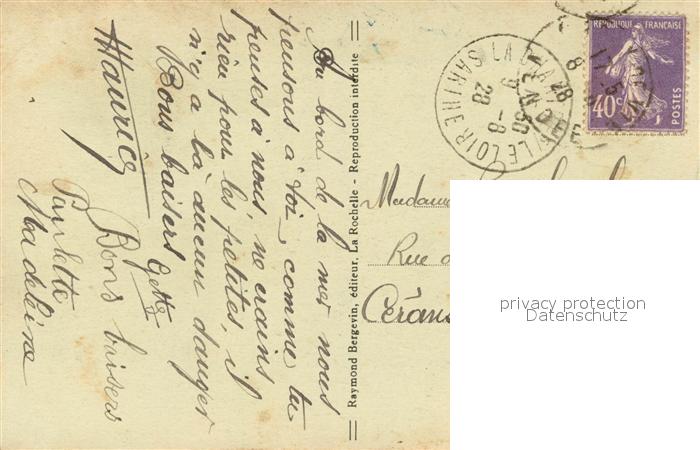 Au bord de la mer nous
pensons à toi, comme tu
penses à nous, ne crains
rien pour les petites, il
n'y a là aucun danger
Bons baisers
Maurice
Getty
Bons baisers
Paulette
Madeleine
Raymond Bergevin, éditeur, La Rochelle - Reproduction interdite
LE LOIR SARTHE
8-8
28
REPUBLIQUE FRANÇAISE
40c
POSTES
Madame
Rue d
Cérans
privacy protection
Datenschutz